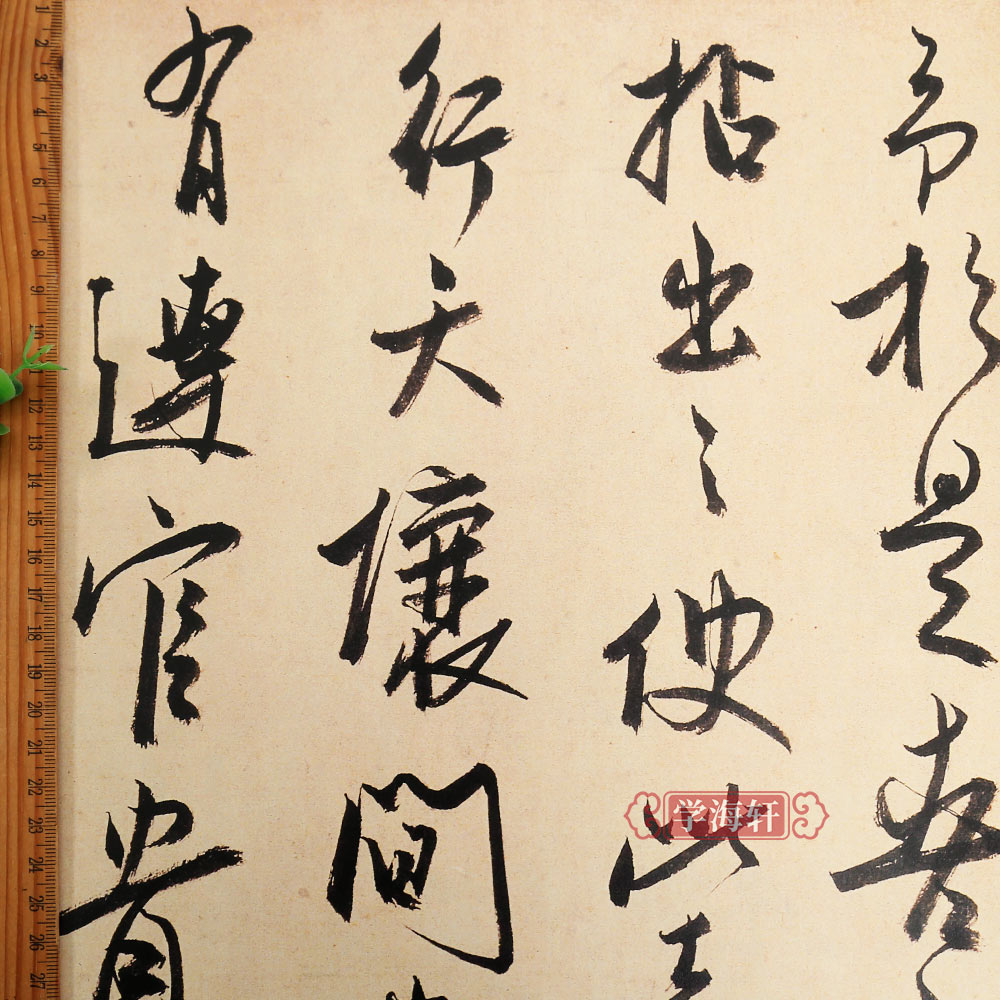 予於是喜
拈出之使此
行天壤間
有達官貴
学海轩
1 2 3 4 5 6 7 8 9 10 11 12 13 14 15 16 17 18 19 20 21 22 23 24 25 26 27